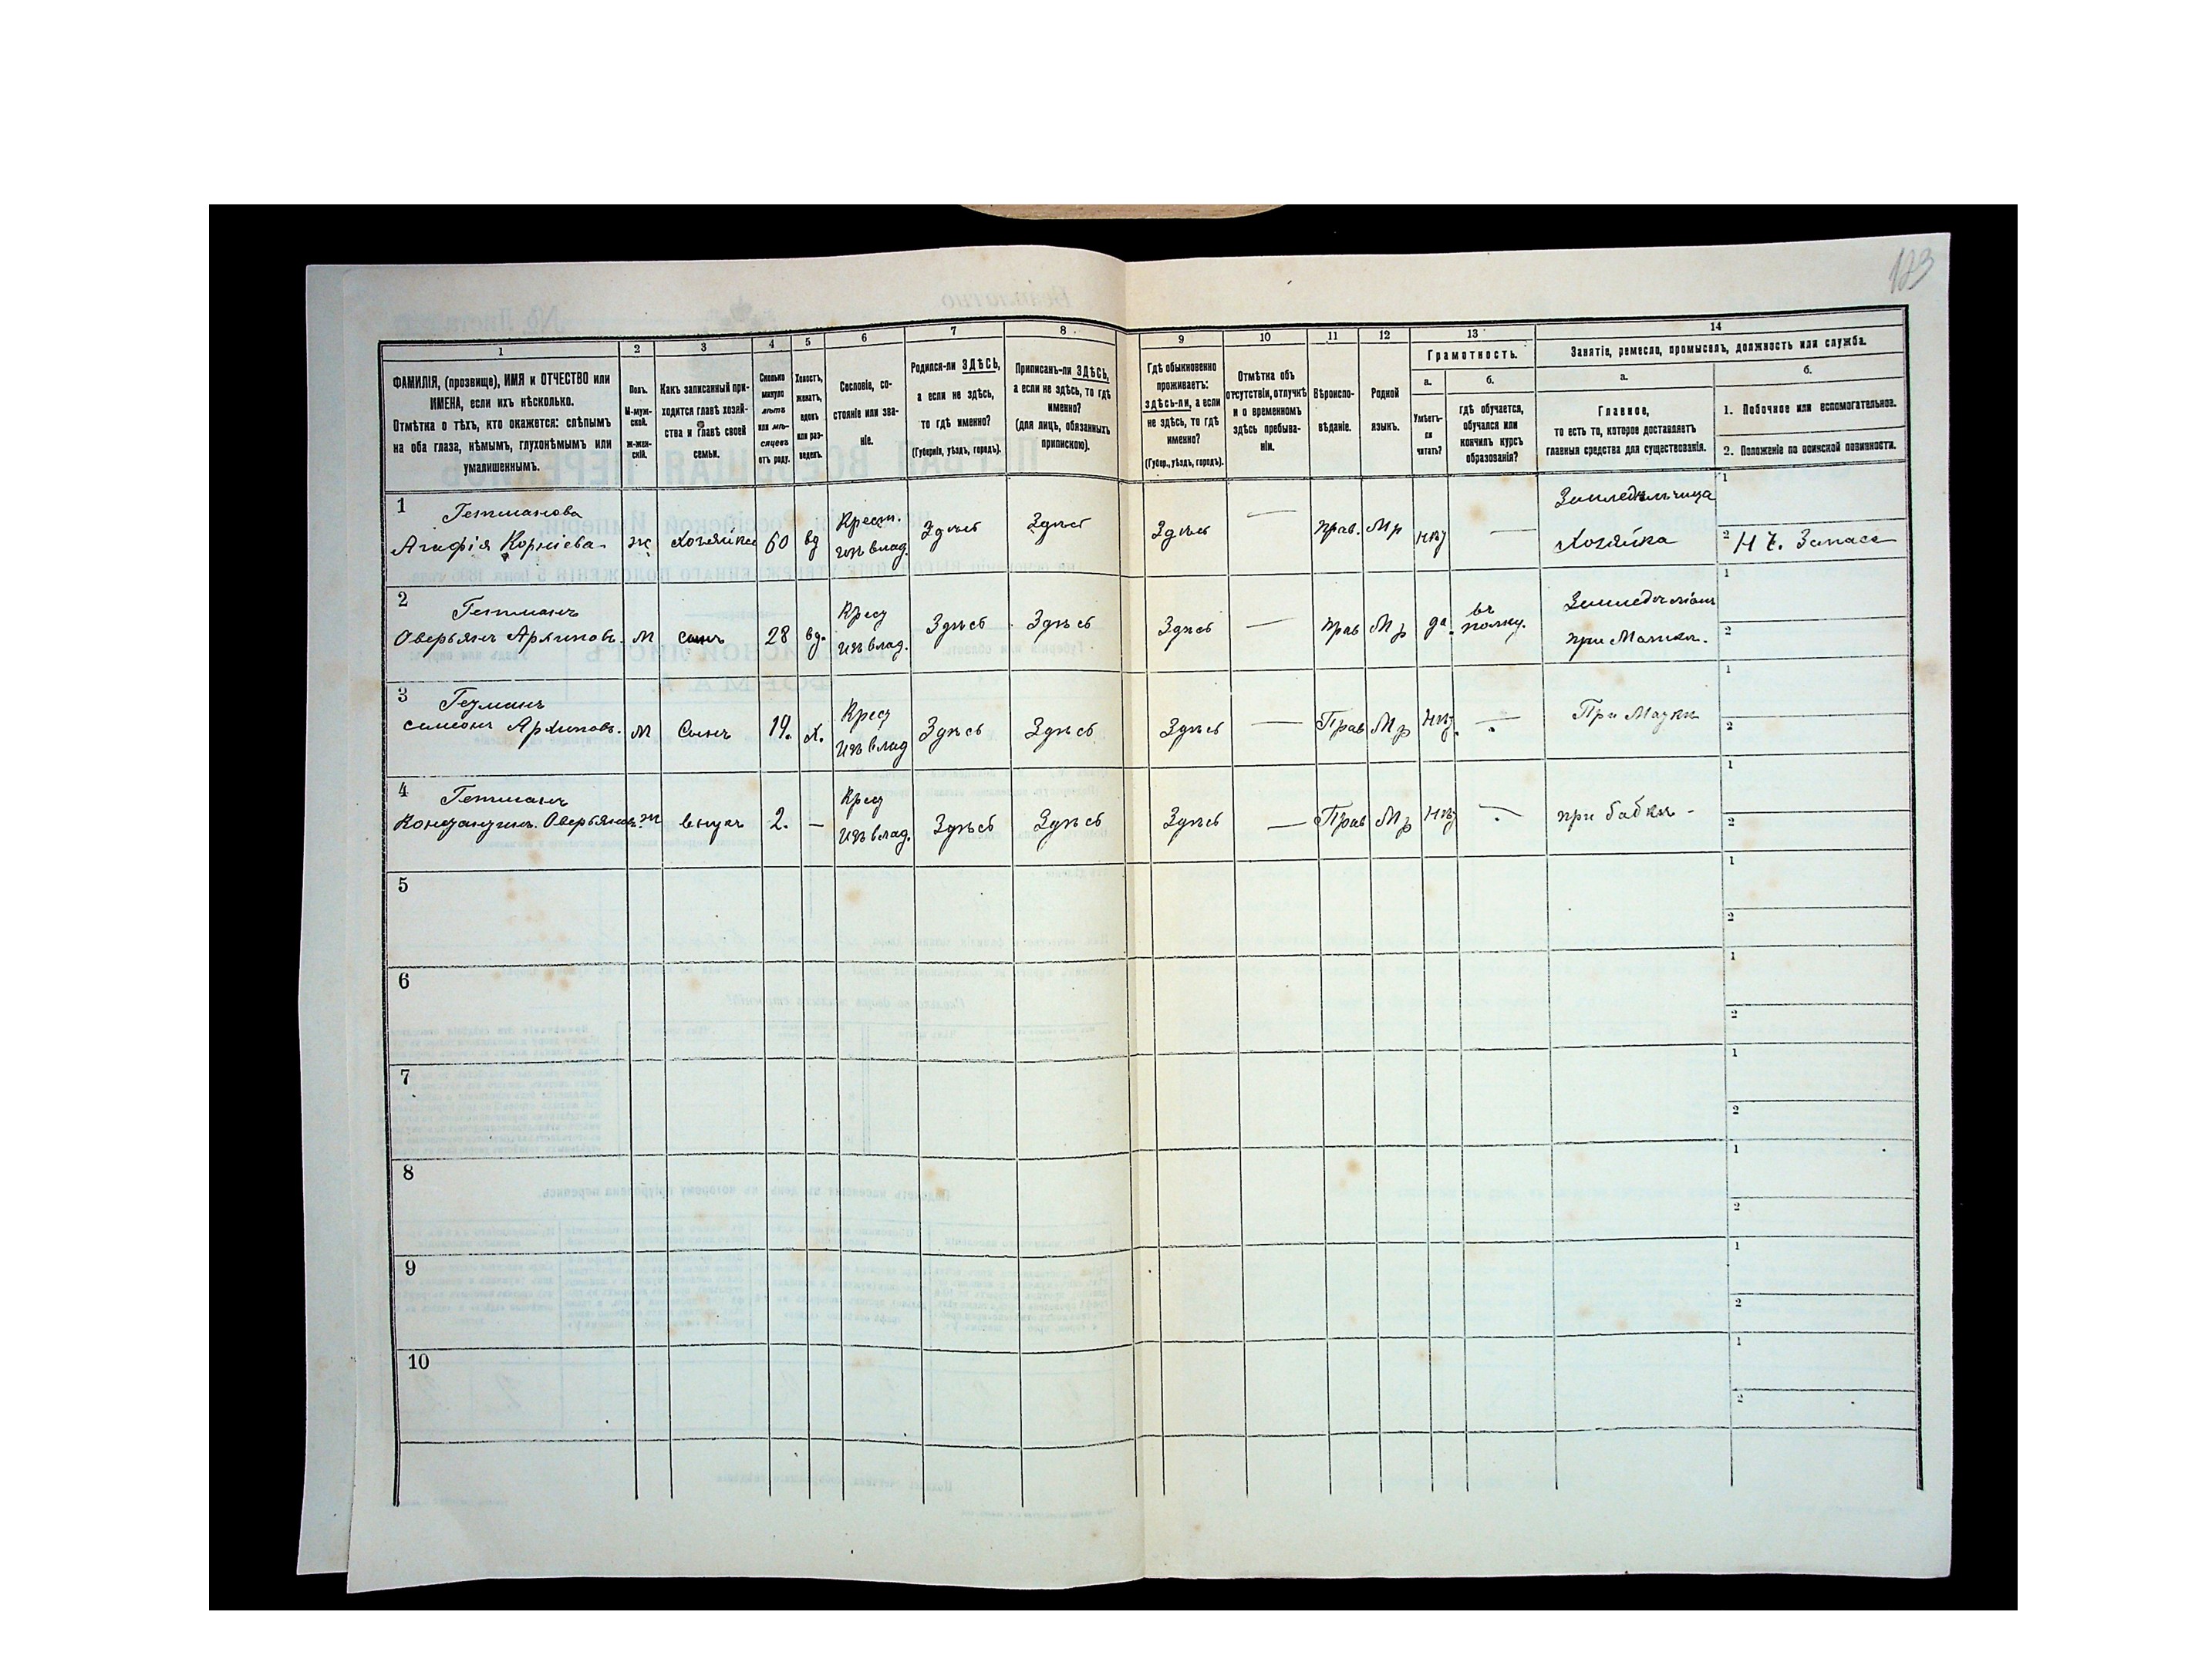 123
1 2 3 4 5 6 7 8 9 10 11 12 13 14
ФАМИЛІЯ, (прозвище), ИМЯ и ОТЧЕСТВО или
ИМЕНА, если ихъ нѣсколько.
Отмѣтка о тѣхъ, кто окажется: слѣпымъ
на оба глаза, нѣмымъ, глухонѣмымъ или
умалишеннымъ.
Полъ.
М-муж-
ской.
Ж-жен-
скій.
Какъ записанный при-
ходится главѣ хозяй-
ства и главѣ своей
семьи.
Сколько
минуло
лѣтъ
или мѣ-
сяцевъ
отъ роду.
Холостъ,
женатъ,
вдовъ
или раз-
веденъ.
Сословіе, со-
стояніе или зва-
ніе.
Родился-ли ЗДѢСЬ,
а если не здѣсь,
то гдѣ именно?
(Губернія, уѣздъ, городъ).
Приписанъ-ли ЗДѢСЬ,
а если не здѣсь, то гдѣ
именно?
(для лицъ, обязанныхъ
припискою).
Гдѣ обыкновенно
проживаетъ:
здѣсь-ли, а если
не здѣсь, то гдѣ
именно?
(Губер., уѣздъ, городъ).
Отмѣтка объ
отсутствіи, отлучкѣ
и о временномъ
здѣсь пребыва-
ніи.
Вѣроиспо-
вѣданіе.
Родной
языкъ.
Грамотность.
а.
Умѣетъ-
ли
читать?
б.
гдѣ обучается,
обучался или
кончилъ курсъ
образованія?
Занятіе, ремесло, промыселъ, должность или служба.
а.
Главное,
то есть то, которое доставляетъ
главныя средства для существованія.
б.
1. Побочное или вспомогательное.
2. Положеніе по воинской повинности.
1 Гетманова Крест. Земледѣльчица 1
Агафія Корніева ж хозяйка 60 вд изъ влад. Здѣсь Здѣсь Здѣсь — прав. Мр нѣт — Хозяйка 2 Н Ч. Запаса
2 Гетманъ Крест въ 1
Оверьянъ Архиповъ. м сынъ 28 вд. изъ влад. Здѣсь Здѣсь Здѣсь — прав Мр да. полку. при Матки. 2
3 Гетманъ Крест 1
Симеонъ Архиповъ. м Сынъ 19. х. Изъ влад Здѣсь Здѣсь Здѣсь — Прав Мр Нѣт. — При Матки 2
4 Гетманъ Крест 1
Константинъ Оверьяновъ. м внукъ 2. — Изъ влад. Здѣсь Здѣсь Здѣсь — Прав Мр Нѣт — при бабкѣ - 2
5 1
2
6 1
2
7 1
2
8 1
2
9 1
2
10 1
2